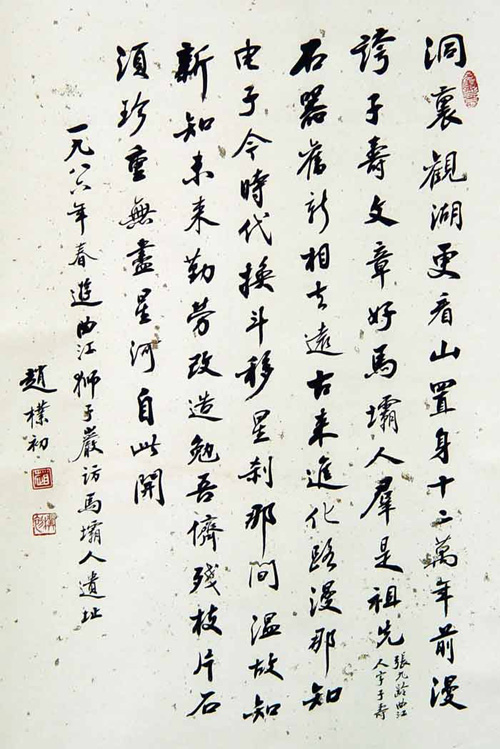 洞裏觀湖更看山置身十二萬年前漫
誇子壽文章好馬壩人羣是祖先
張九齡曲江
人字子壽
石器舊新相去遠古來進化路漫那知
電子今時代換斗移星刹那間溫故知
新知未來勤勞改造勉吾儕殘枝片石
須珍重無盡星河自此開
一九八六年春遊曲江獅子巖訪馬壩人遺址
趙樸初